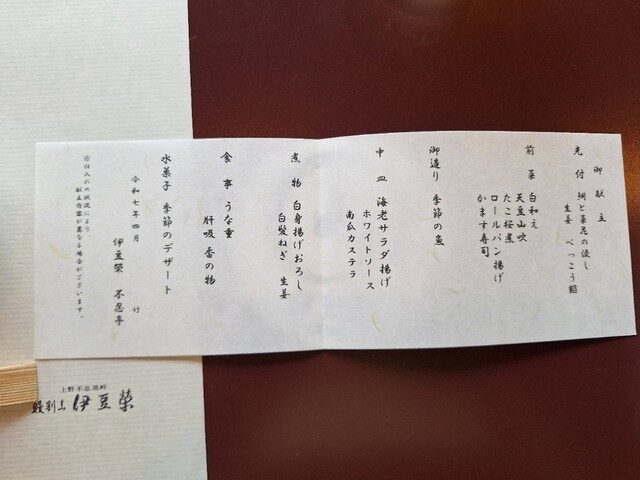 御献立
先付 鯛と菜花の浸し
生姜 べっこう餡
前菜 白和え
天豆山吹
たこ桜煮
ロールパン揚げ
かます寿司
御造り 季節の魚
中皿 海老サラダ揚げ
ホワイトソース
南瓜カステラ
煮物 白身揚げおろし
白髪ねぎ 生姜
食事 うな重
肝吸 香の物
水菓子 季節のデザート
令和七年四月 吉
伊豆榮 不忍亭
※仕入れの状況により、
献立内容が異なる場合がございます。
上野不忍池畔
鰻割烹 伊豆榮